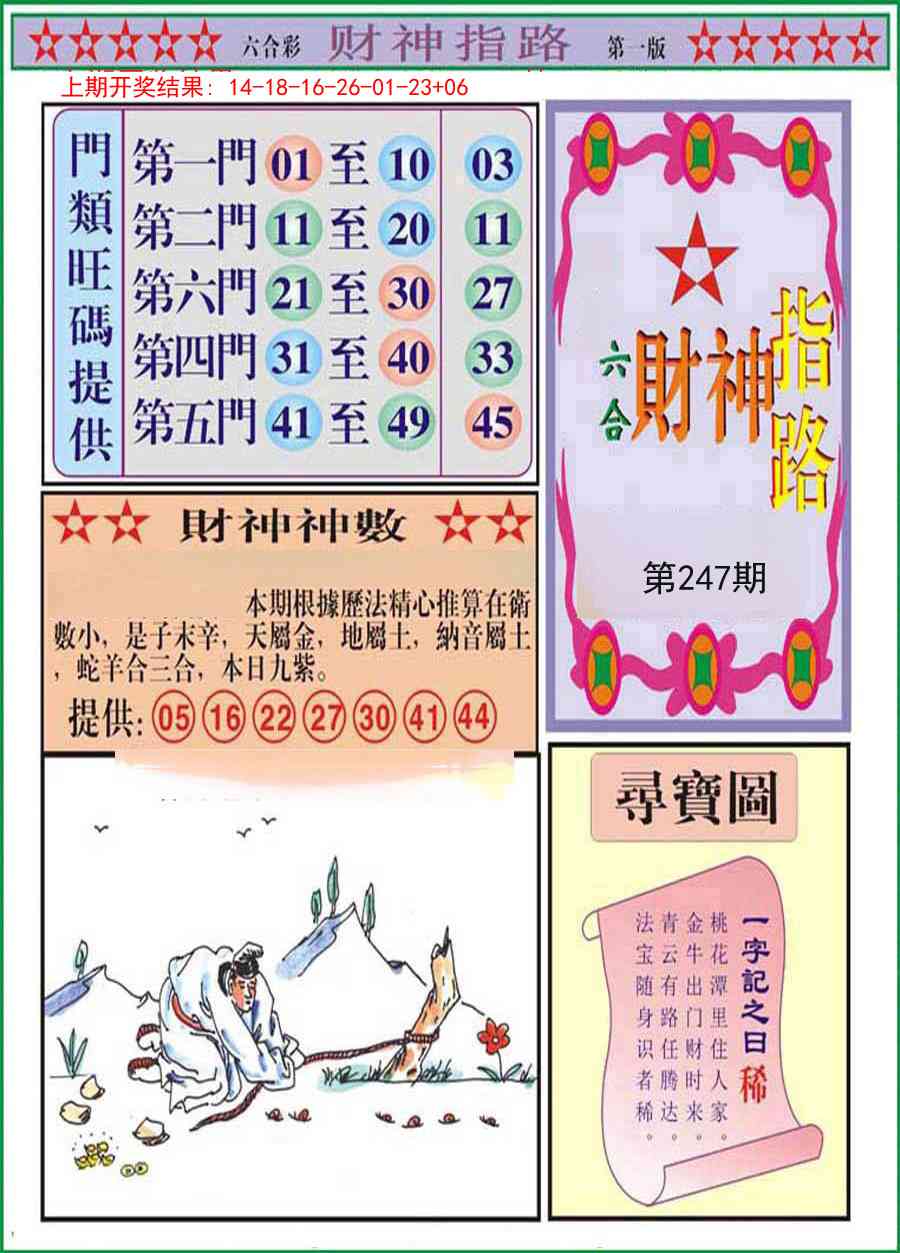 六合彩 财神指路 第一版
上期开奖结果: 14-18-16-26-01-23+06
門類旺碼提供
第一門 01 至 10 03
第二門 11 至 20 11
第六門 21 至 30 27
第四門 31 至 40 33
第五門 41 至 49 45
六合
財神
指路
第247期
財神神數
本期根據歷法精心推算在衛
數小，是子末辛，天屬金，地屬土，納音屬土
，蛇羊合三合，本日九紫。
提供: 05 16 22 27 30 41 44
尋寶圖
一字記之曰 稀
桃花潭里住人家。
金牛出门财时来。
青云有路任腾达。
法宝随身识者稀。